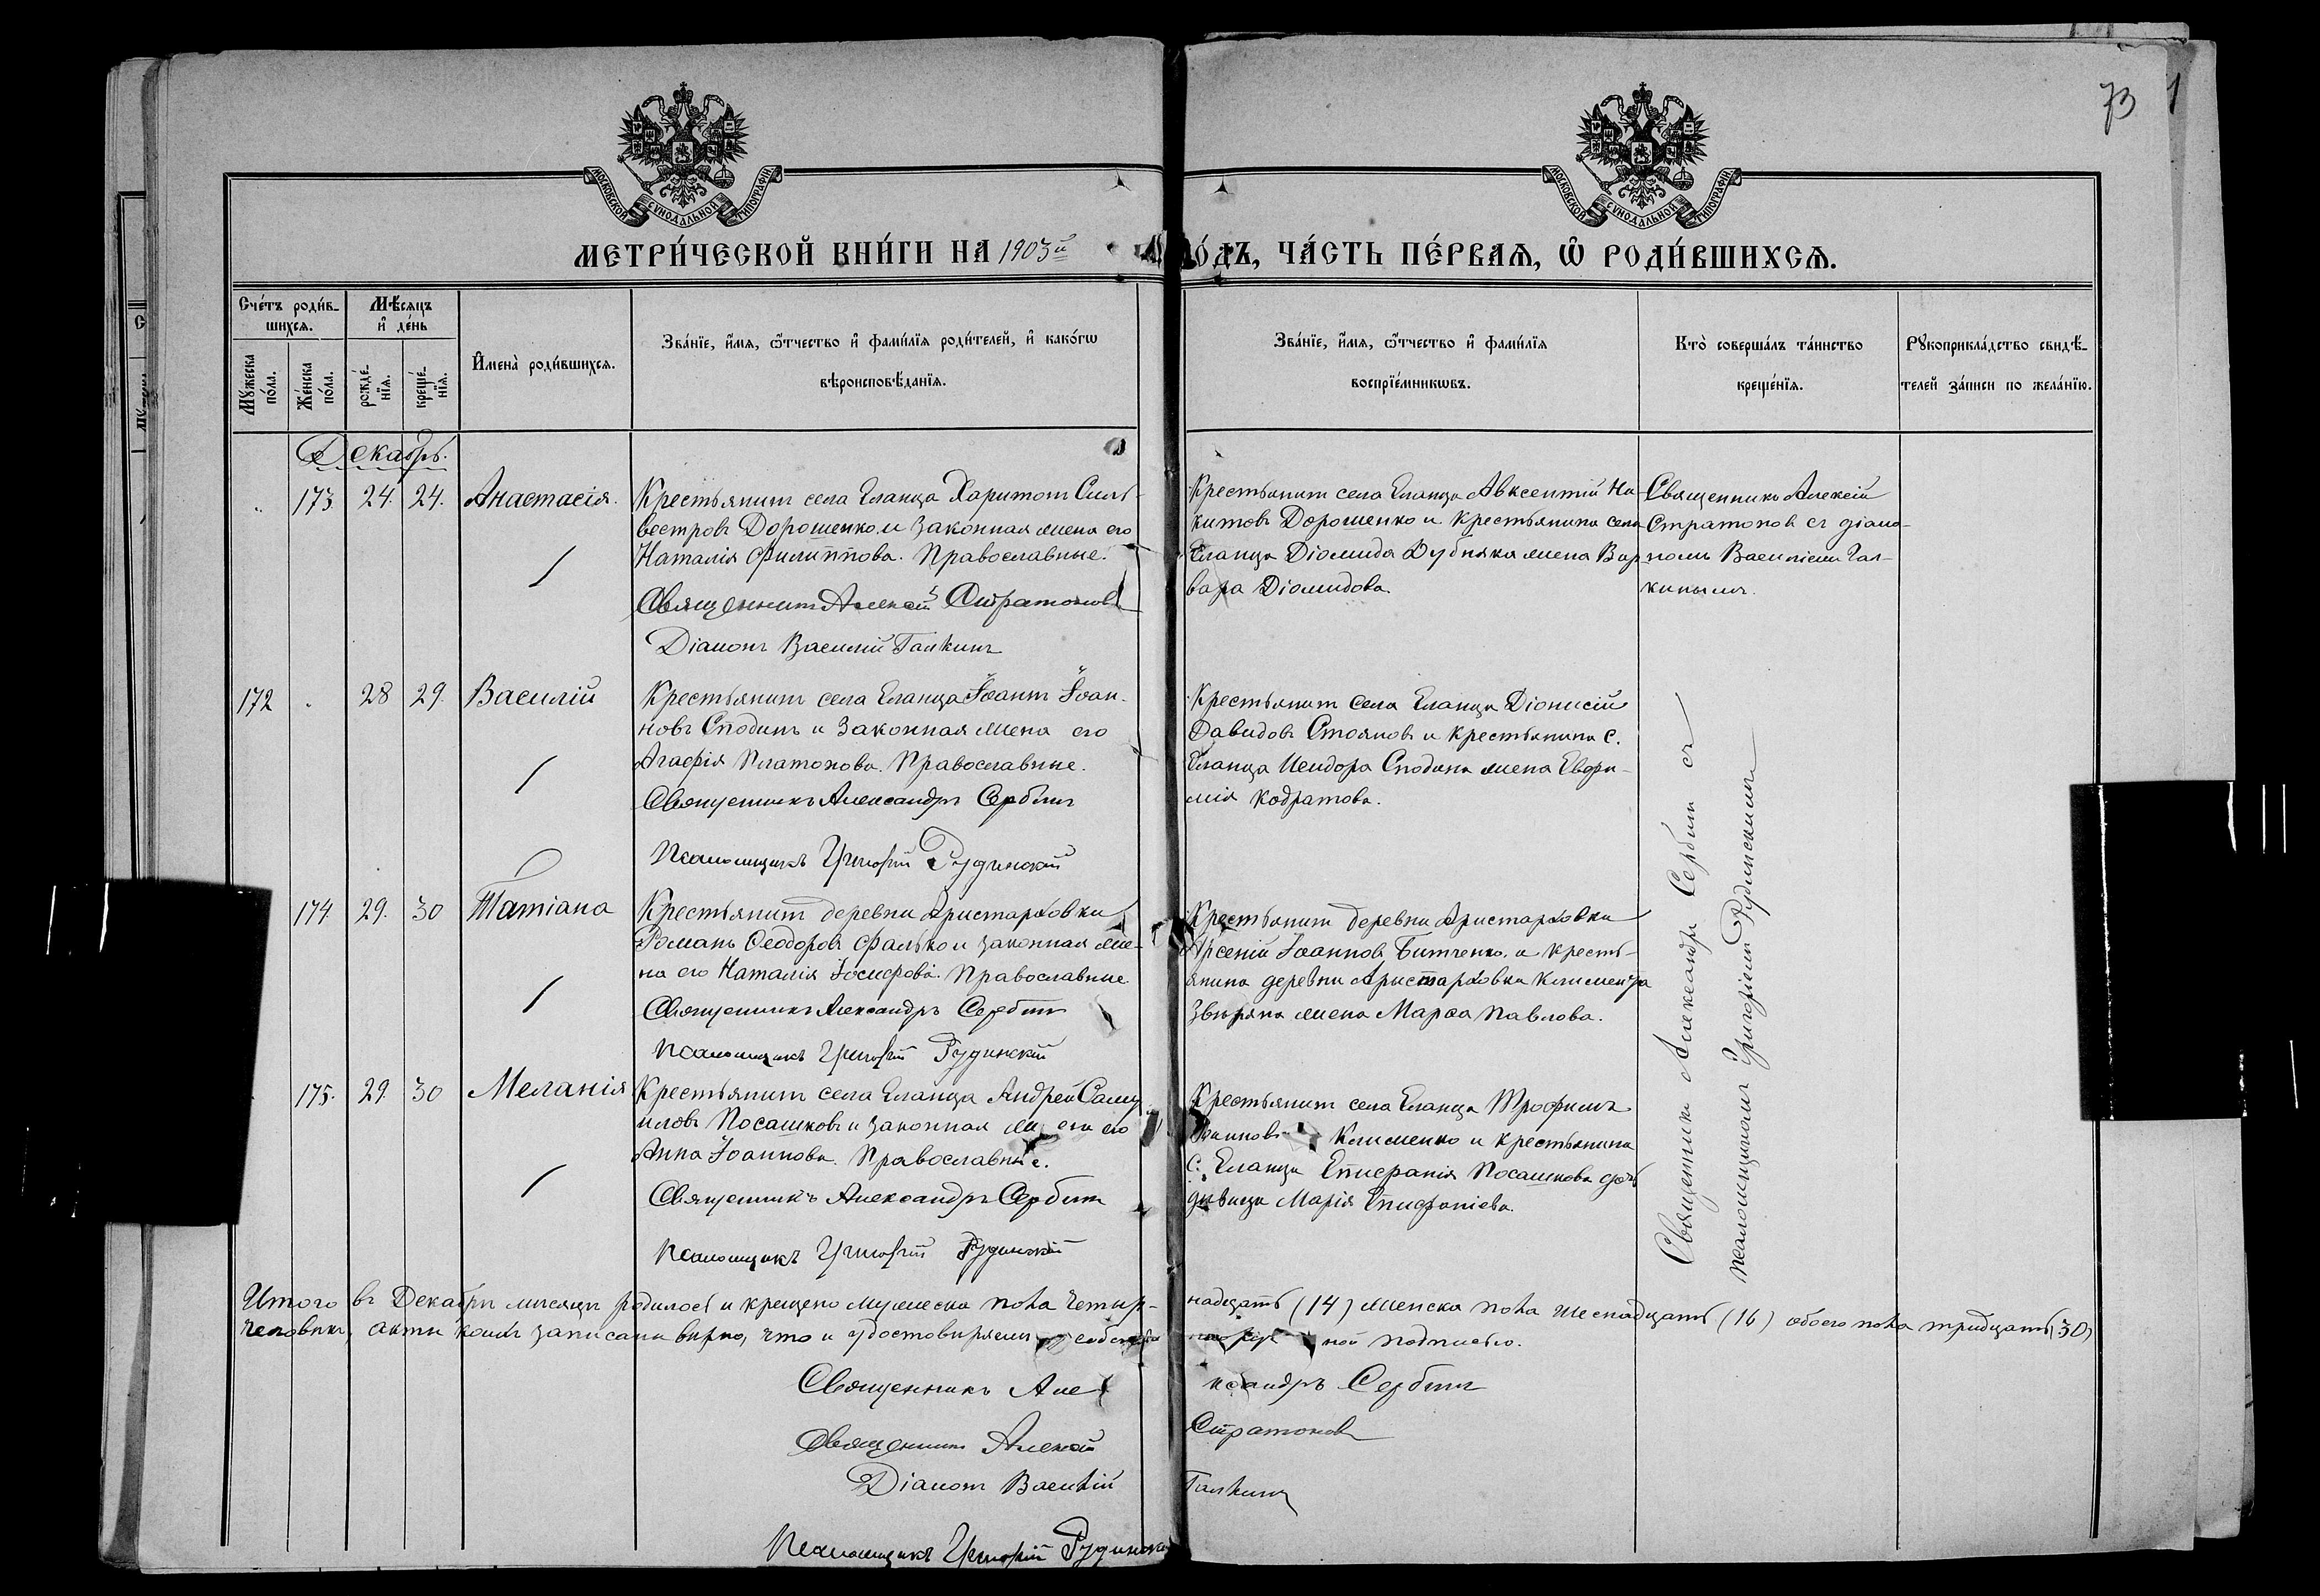 73
1
МОСКОВСКОЙ СѴНОДАЛЬНОЙ ТИПОГРАФІИ
МОСКОВСКОЙ СѴНОДАЛЬНОЙ ТИПОГРАФІИ
МЕТРИ́ЧЕСКОЙ КНИ́ГИ НА 1903й ГО́ДЪ, ЧА́СТЬ ПЕ́РВАѦ, Ѡ҆ РОДИ́ВШИХСѦ.
Сче́тъ роди́в-
шихсѧ.
Мꙋ́жеска по́ла.
Же́нска по́ла.
Мѣ́сѧцъ
и҆ де́нь
рожде́-
нїѧ.
креще́-
нїѧ.
И҆мена̀ роди́вшихсѧ.
Зва́нїе, и҆́мѧ, ѻ҆́тчество и҆ фами́лїѧ роди́телей, и҆ како́гѡ
вѣроисповѣ́данїѧ.
Зва́нїе, и҆́мѧ, ѻ҆́тчество и҆ фами́лїѧ
воспрїе́мникѡвъ.
Кто̀ соверша́лъ та́инство
креще́нїѧ.
Рꙋкоприкла́дство свидѣ́-
телей за́писи по жела́нїю.
Декабрь.
173. 24. 24. Анастасія.
Крестьянинъ села Еланца Харитонъ Силь-
вестровъ Дорошенко и законная жена его
Наталія Филиппова. Православные.
Священникъ Алексій Стратоновъ
Діаконъ Василій Галкинъ
Крестьянинъ села Еланца Авксентій Ни-
китовъ Дорошенко и крестьянина села
Еланца Діомида Дубняка жена Вар-
вара Діомидова.
Священникъ Алексій
Стратоновъ съ діако-
номъ Василіемъ Гал-
кинымъ.
172 28 29. Василій
Крестьянинъ села Еланца Іоаннъ Іоан-
новъ Сподинъ и законная жена его
Агафія Платонова. Православные.
Священникъ Александръ Сербинъ
Псаломщикъ Григорій Рудинскій
Крестьянинъ села Еланца Діонисій
Давидовъ Стояновъ и крестьянина с.
Еланца Исидора Сподина жена Евфи-
мія Кодратова.
Священникъ Александръ Сербинъ съ
псаломщикомъ Григоріемъ Рудинскимъ
174 29. 30 Татіана
Крестьянинъ деревни Аристарховки
Романъ Ѳеодоровъ Фалько и законная же-
на его Наталія Іосифова. Православные.
Священникъ Александръ Сербинъ
Псаломщикъ Григорій Рудинскій
Крестьянинъ деревни Аристарховки
Арсеній Іоанновъ Битченко и кресть-
янина деревни Аристарховки Климента
Звѣряка жена Марѳа Павлова.
175. 29. 30 Меланія
Крестьянинъ села Еланца Андрей Саму-
иловъ Посашковъ и законная жена его
Анна Іоаннова. Православные.
Священникъ Александръ Сербинъ
Псаломщикъ Григорій Рудинскій
Крестьянинъ села Еланца Трофимъ
Іоанновъ Клименко и крестьянина
с. Еланца Епифанія Посашкова дочь
дѣвица Марія Епифаніева.
Итого въ Декабрѣ мѣсяцѣ родилось и крещено мужеска пола четыр-надцать (14) женска пола шестнадцать (16) обоего пола тридцать (30)
человѣкъ, акты коихъ записаны вѣрно, что и удостовѣряемъ ной подписью.
Священникъ Александръ Сербинъ
Священникъ Алексій Стратоновъ
Діаконъ Василій Галкинъ
Псаломщикъ Григорій Рудинскій